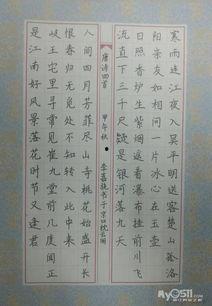 寒雨连江夜入吴平明送客楚山孤洛
阳亲友如相问一片冰心在玉壶
日照香炉生紫烟遥看瀑布挂前川飞
流直下三千尺疑是银河落九天
唐诗四首 甲午秋 李嘉书于京口枕云阁
人间四月芳菲尽山寺桃花始盛开长
恨春归无觅处不知转入此中来
岐王宅里寻常见崔九堂前几度闻正
是江南好风景落花时节又逢君
My0511.com